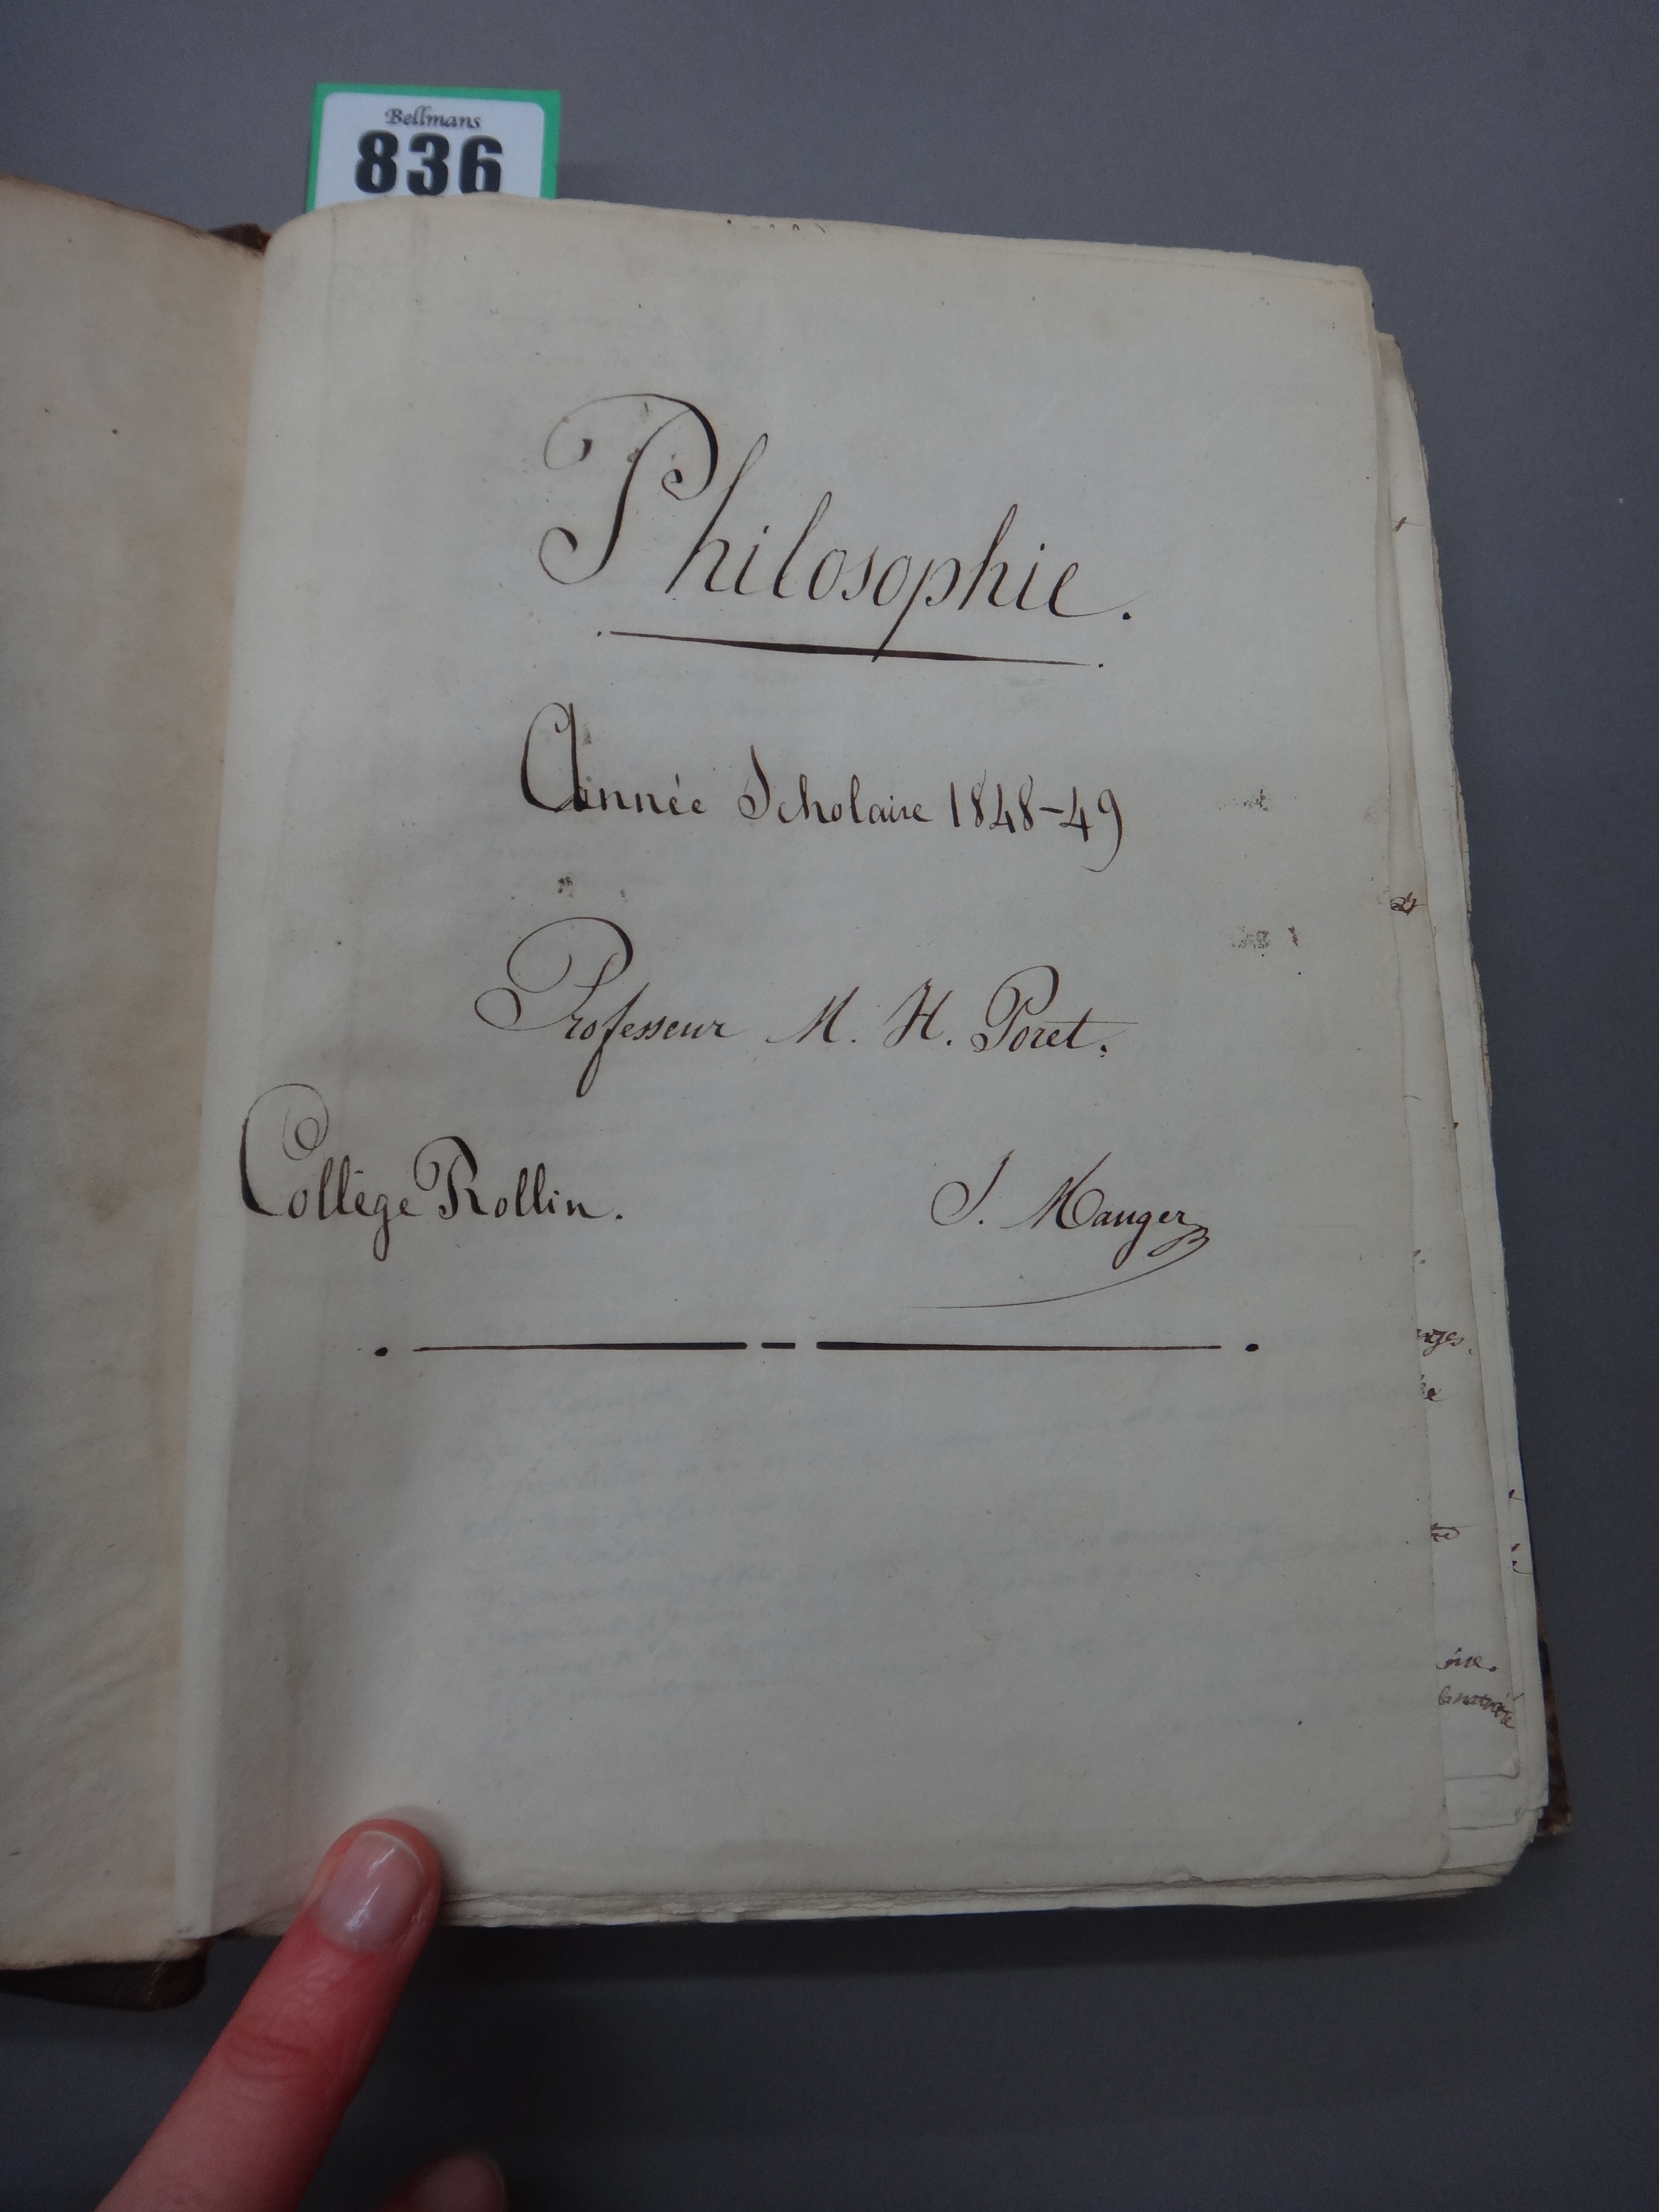 Bellmans
836
Philosophie.
Année Scholaire 1848-49
Professeur M. H. Poret.
Collège Rollin. J. Mauger